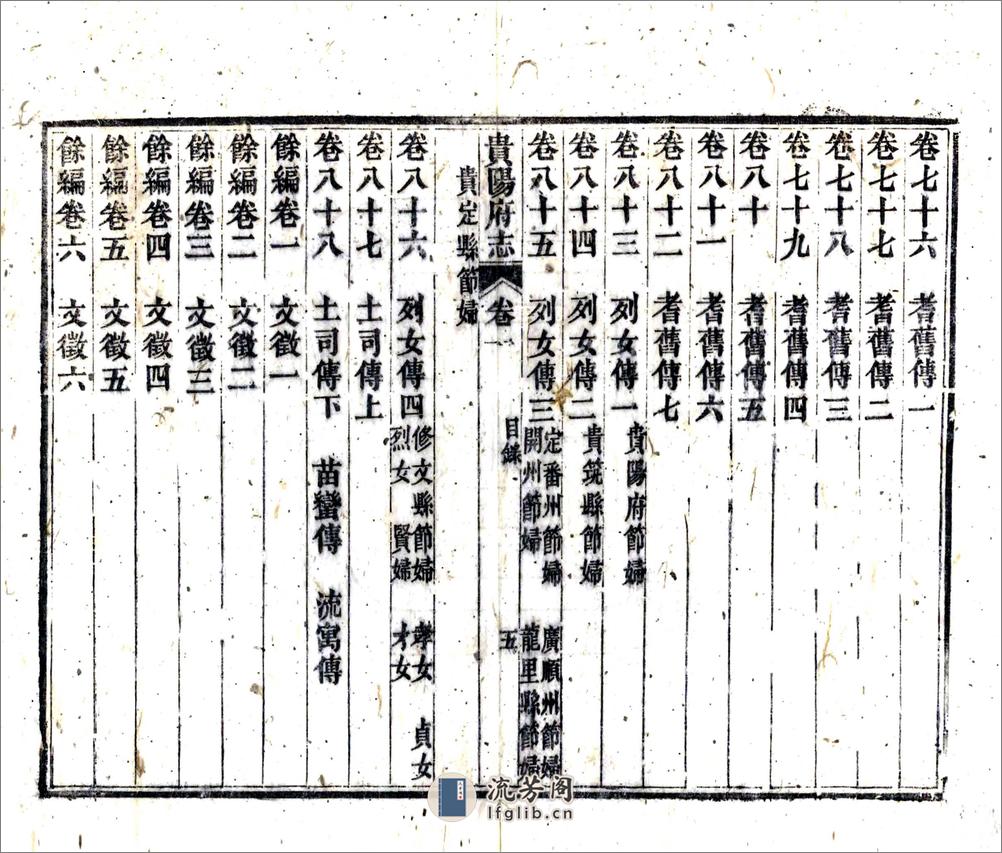 卷七十六 耆舊傳一
卷七十七 耆舊傳二
卷七十八 耆舊傳三
卷七十九 耆舊傳四
卷八十 耆舊傳五
卷八十一 耆舊傳六
卷八十二 耆舊傳七
卷八十三 列女傳一 貴陽府節婦
卷八十四 列女傳二 貴筑縣節婦
卷八十五 列女傳三 定番州節婦 廣順州節婦
開州節婦 龍里縣節婦
貴陽府志 卷一 目錄 五
貴定縣節婦
卷八十六 列女傳四 修文縣節婦 孝女 貞女
烈女 賢婦 才女
卷八十七 土司傳上
卷八十八 土司傳下 苗蠻傳 流寓傳
餘編卷一 文徵一
餘編卷二 文徵二
餘編卷三 文徵三
餘編卷四 文徵四
餘編卷五 文徵五
餘編卷六 文徵六
流芳阁
lfglib.cn